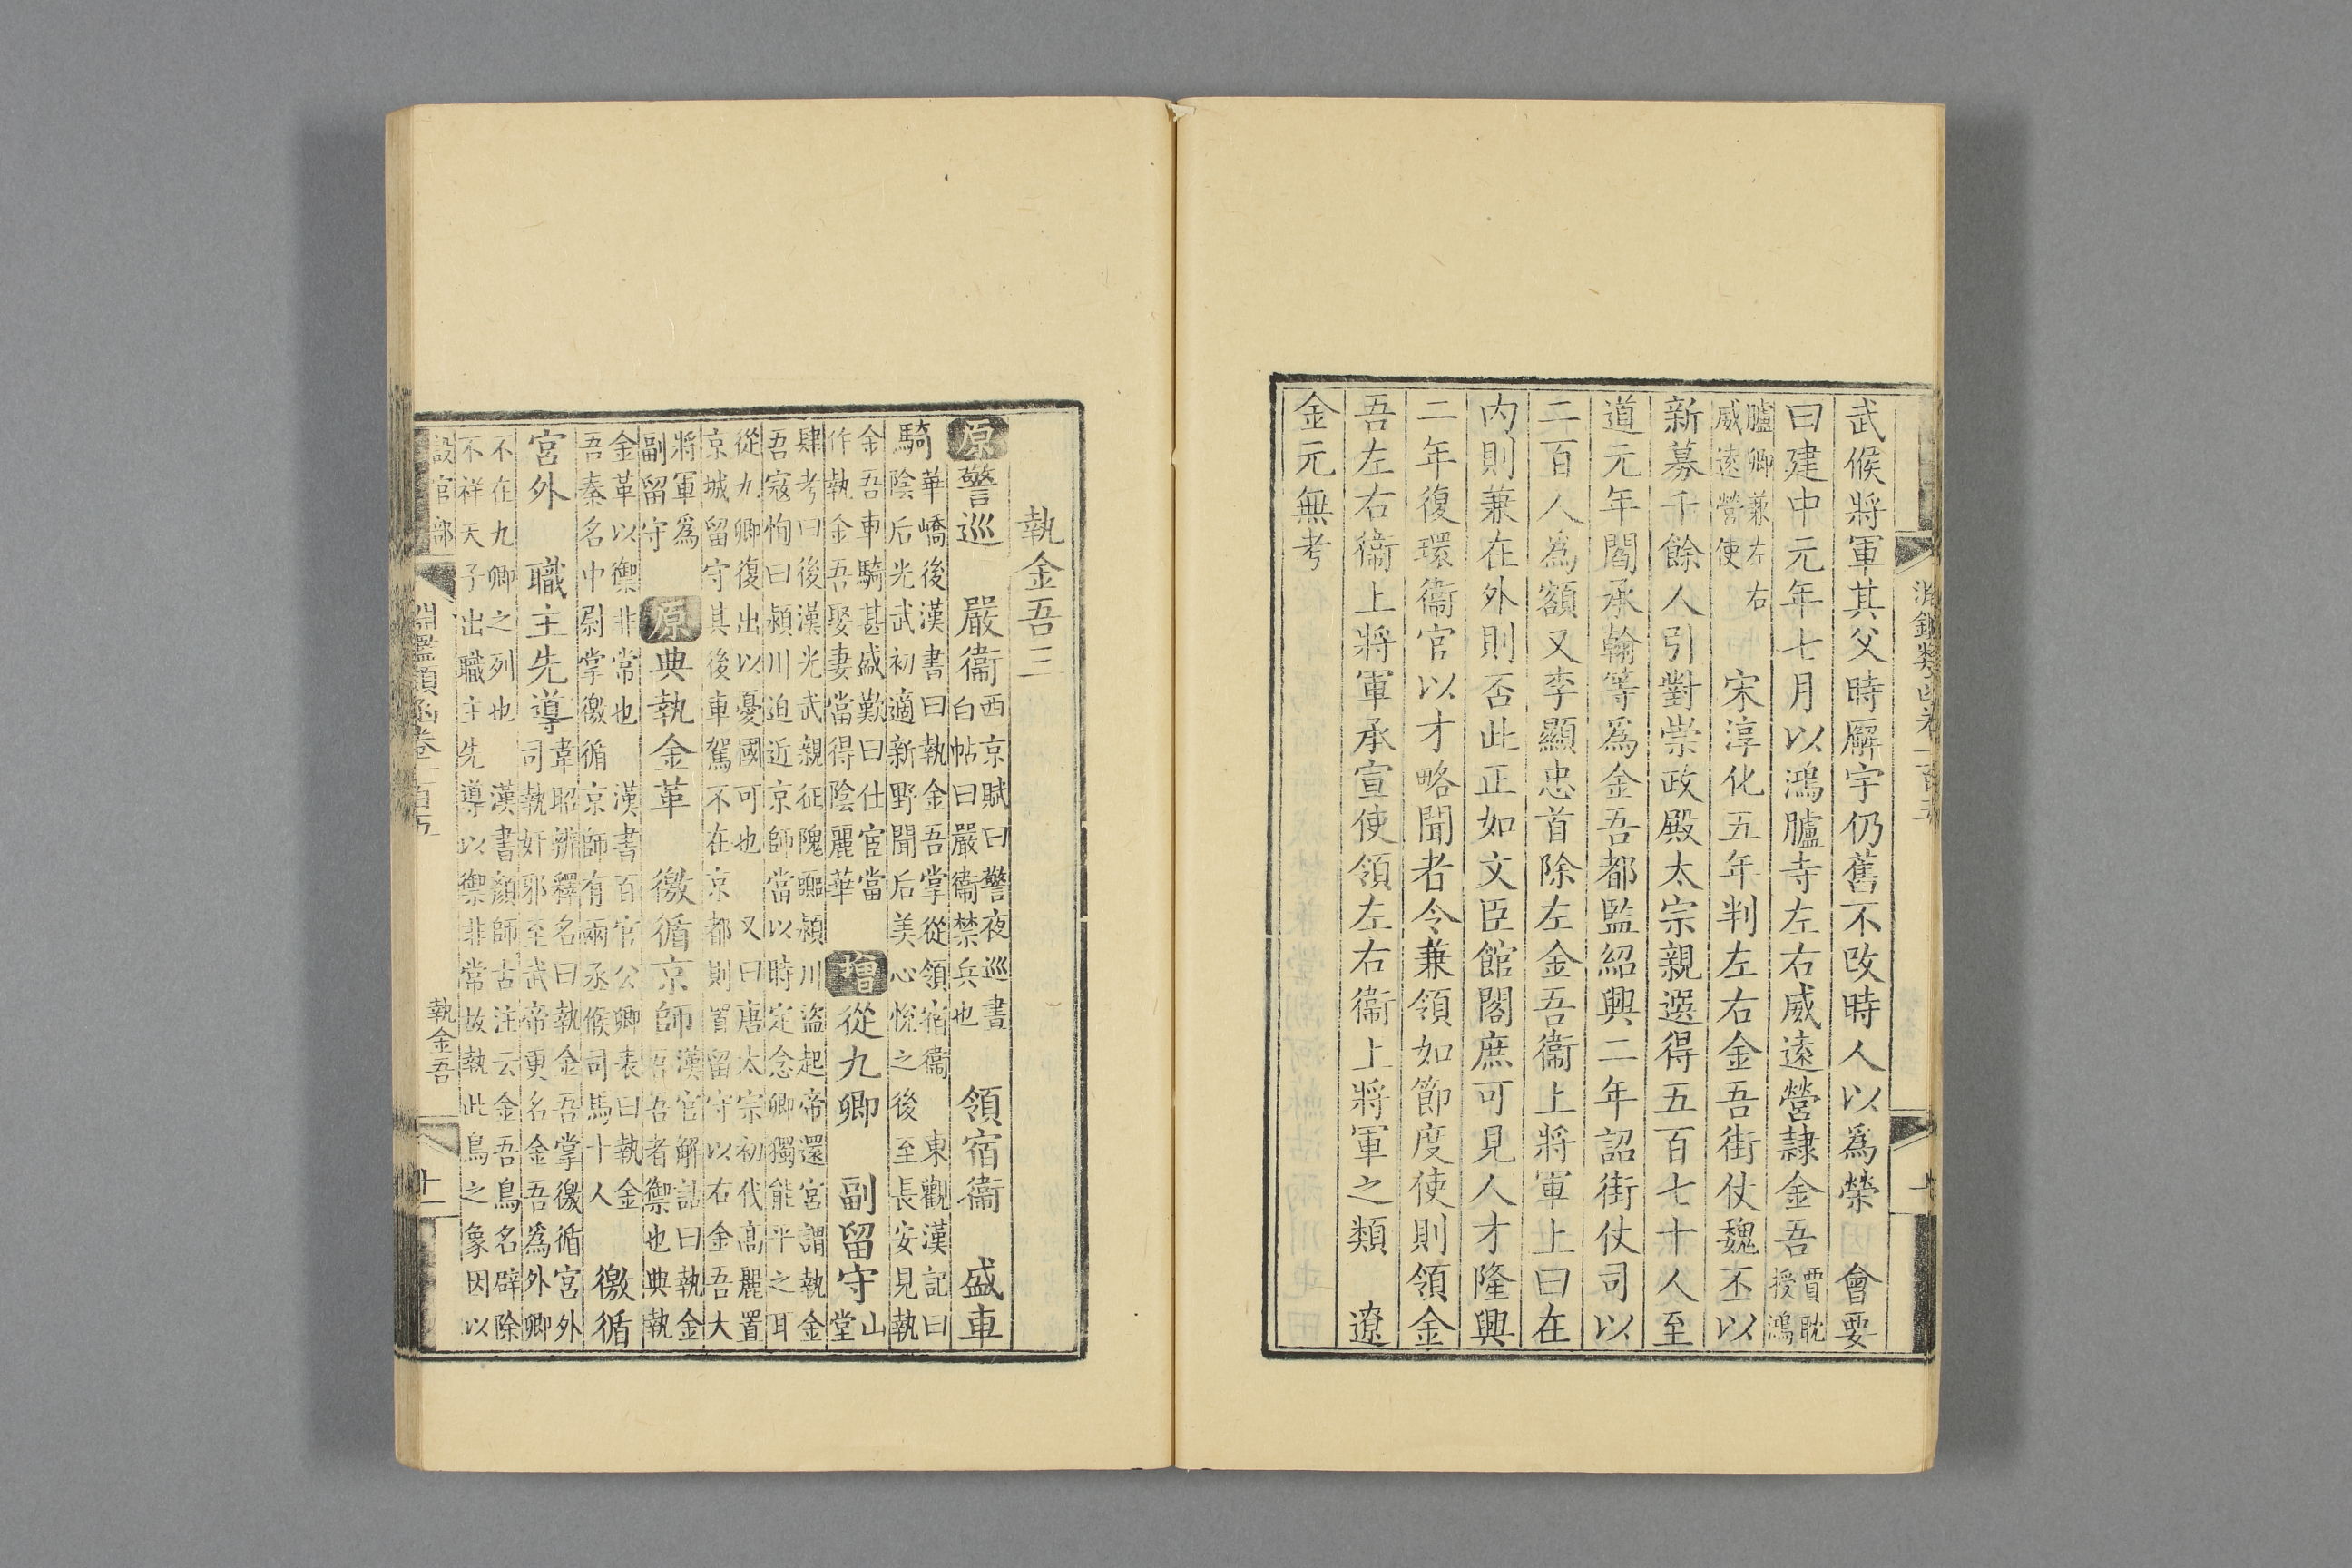 武候將軍其父時廨宇仍舊不改時人以為榮 會要
曰建中元年七月以鴻臚寺左右威遠營隷金吾賈耽授鴻
臚卿兼左右威遠營使 宋淳化五年判左右金吾街仗魏丕以
新募千餘人引對崇政殿太宗親選得五百七十人至
道元年閻承翰等為金吾都監紹興二年詔街仗司以
二百人為額又李顯忠首除左金吾衞上將軍上曰在
内則兼在外則否此正如文臣館閣庶可見人才隆興
二年復環衞官以才略聞者令兼領如節度使則領金
吾左右衞上將軍承宣使領左右衞上將軍之類 遼
金元無考
執金吾三
原警巡 嚴衞西京賦曰警夜巡晝白帖曰嚴衞禁兵也 領宿衞 盛車
騎華嶠後漢書曰執金吾掌從領宿衞 東觀漢記曰陰后光武初適新野聞后美心悅之後至長安見執
金吾車騎甚盛歎曰仕宦當作執金吾娶妻當得陰麗華 增從九卿 副留守山堂
肆考曰後漢光武親征隗囂潁川盜起帝還宮謂執金吾寇恂曰潁川迫近京師當以時定念卿獨能平之耳
從九卿復出以憂國可也 又曰唐太宗初代高麗置京城留守其後車駕不在京都則置留守以右金吾大
將軍為副留守 原典執金革 徼循京師漢官解詁曰執金吾吾者禦也典執
金革以禦非常也 漢書百官公卿表曰執金吾秦名中尉掌徼循京師有兩丞候司馬十人 徼循
宮外 職主先導韋昭辨釋名曰執金吾掌徼循宮外司執奸邪至武帝更名金吾為外卿
不在九卿之列也 漢書顏師古注云金吾鳥名辟除不祥天子出職主先導以禦非常故執此鳥之象因以
設官部
淵鑑類函卷一百五
執金吾
十一